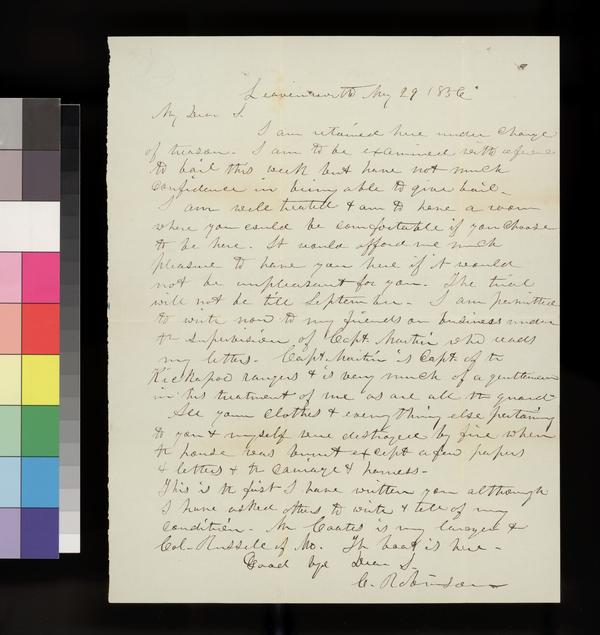 Leavenworth May 29 1856
My Dear S.
I am retained here under charge
of treason. I am to be examined with reference
to bail this week but have not much
confidence in being able to give bail.
I am well treated & am to have a room
where you could be comfortable if you choose
to be here. It would afford me much
pleasure to have you here if it would
not be unpleasant for you. The trial
will not be till September. I am permitted
to write now to my friends on business under
the supervision of Capt. Martin who reads
my letters. Capt. Martin is Capt. of the
Kickapoo rangers & is very much of a gentleman
in his treatment of me as are all the guard
All your clothes & everything else pertaining
to you & myself were destroyed by fire when
the house was burnt except a few papers
& letters & the carriage & harness.
This is the first I have written you although
I have asked others to write & tell of my
condition. Mr Coates is my lawyer &
Col. Russell of Mo. The boat is here.
Good bye Dear S.
C. Robinson